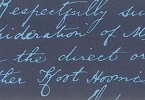 Respectfully su
ideration of M
the direct or
ther Foot Hoomi